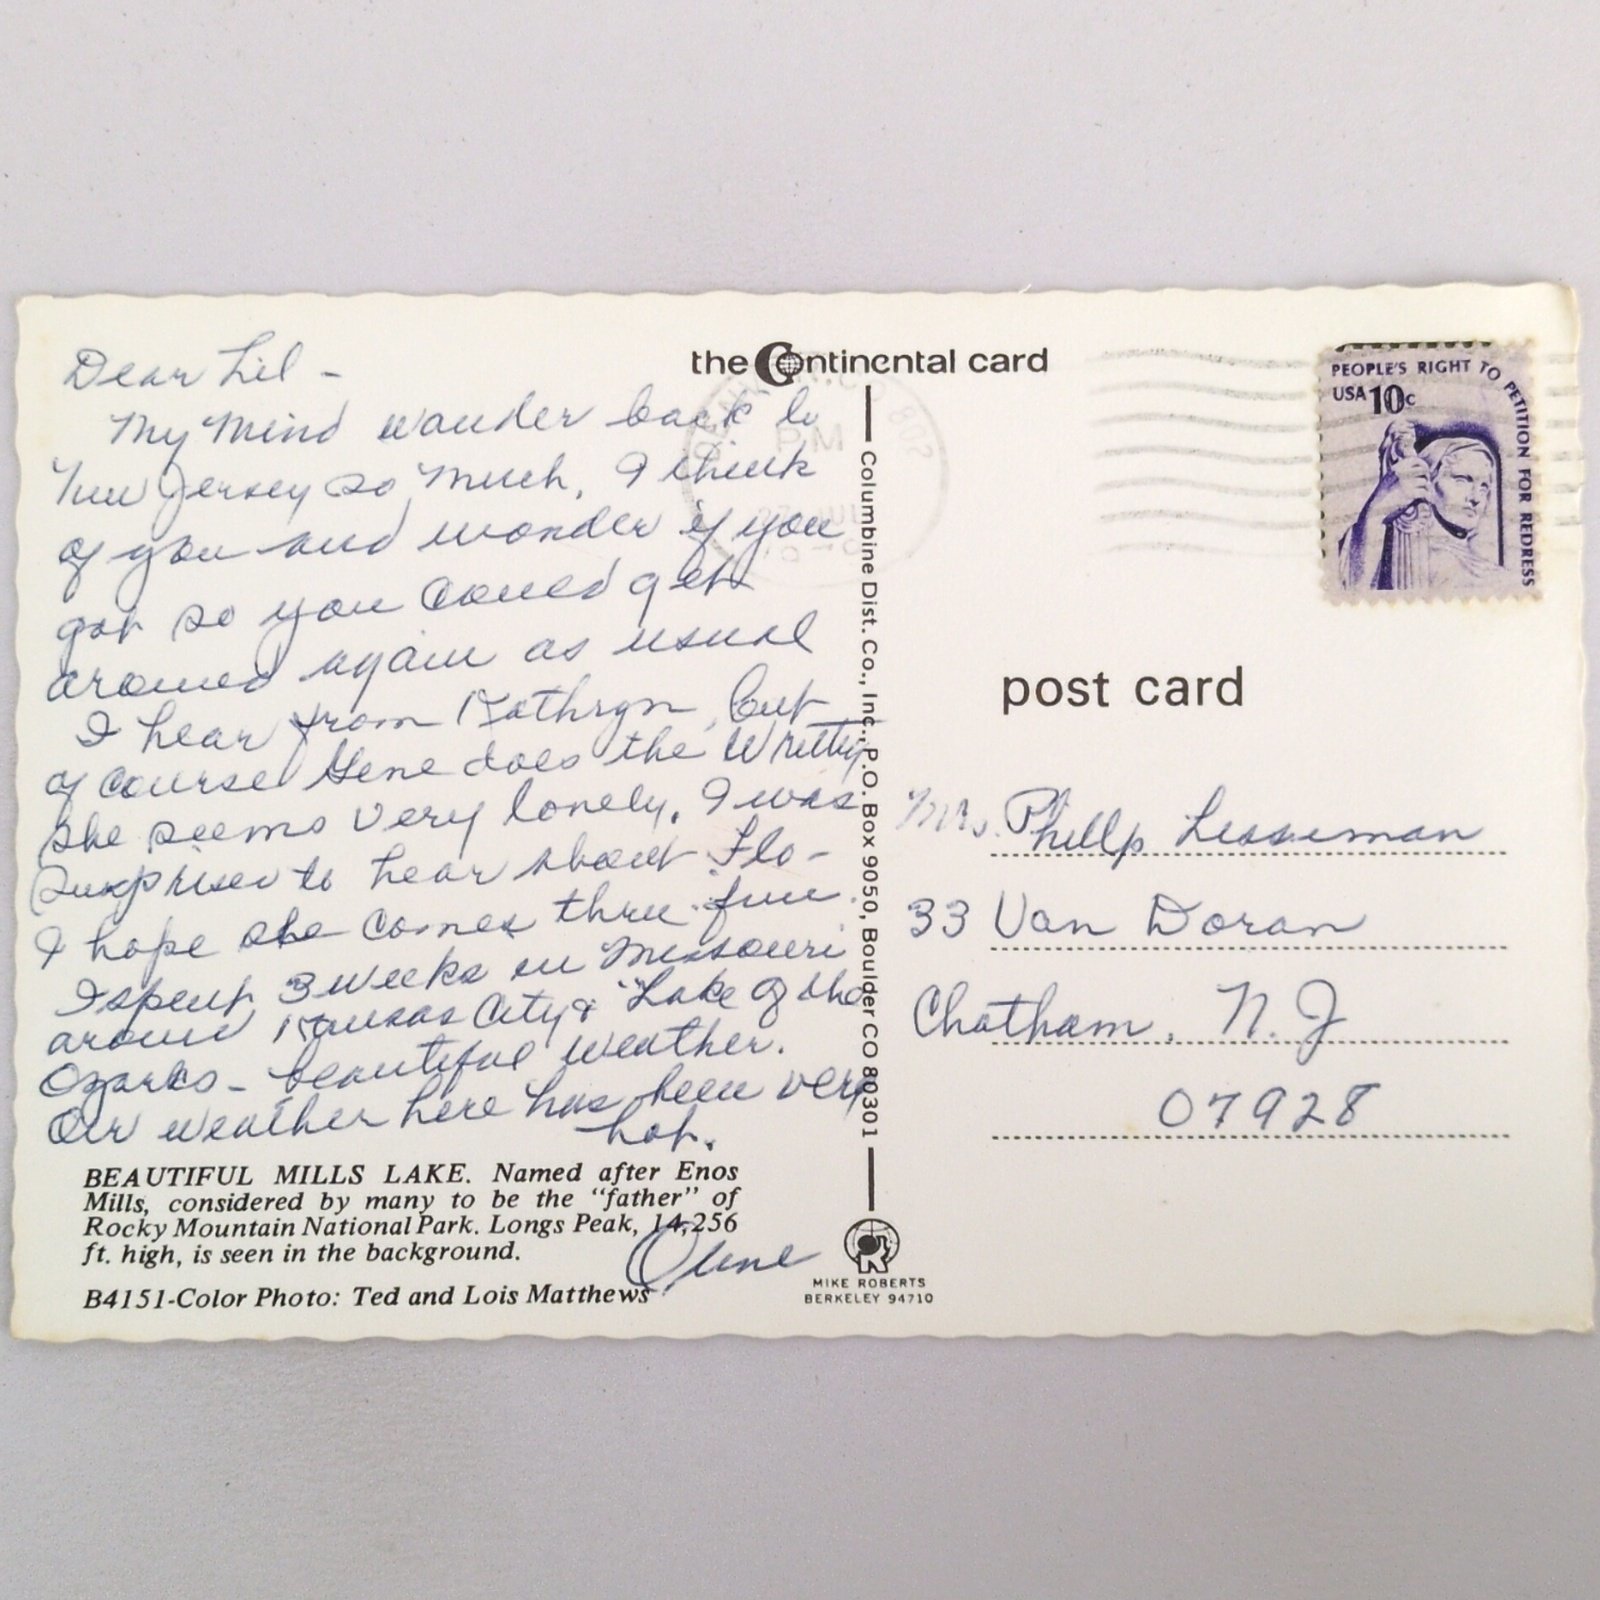 Dear Lil -
My Mind wander back to
New Jersey so much, I think
of you and wonder if you
got so you could get
around again as usual
I hear from Kathryn, but
of course Gene does the Writting
She seems very lonely. I was
Surprised to hear about Flo-
I hope she comes thru fine.
I spent 3 weeks in Missouri
around Kansas City & "Lake of the
Ozarks - beautiful weather.
Our weather here has been very
hot.
BEAUTIFUL MILLS LAKE. Named after Enos
Mills, considered by many to be the "father" of
Rocky Mountain National Park. Longs Peak, 14,256
ft. high, is seen in the background.
B4151-Color Photo: Ted and Lois Matthews
the Continental card
Columbine Dist. Co., Inc., P.O. Box 9050, Boulder CO 80301
MIKE ROBERTS
BERKELEY 94710
PM
802
PEOPLE'S RIGHT TO PETITION FOR REDRESS
USA 10c
post card
Mrs. Phillp
33 Van Doran
Chatham, N.J
07928